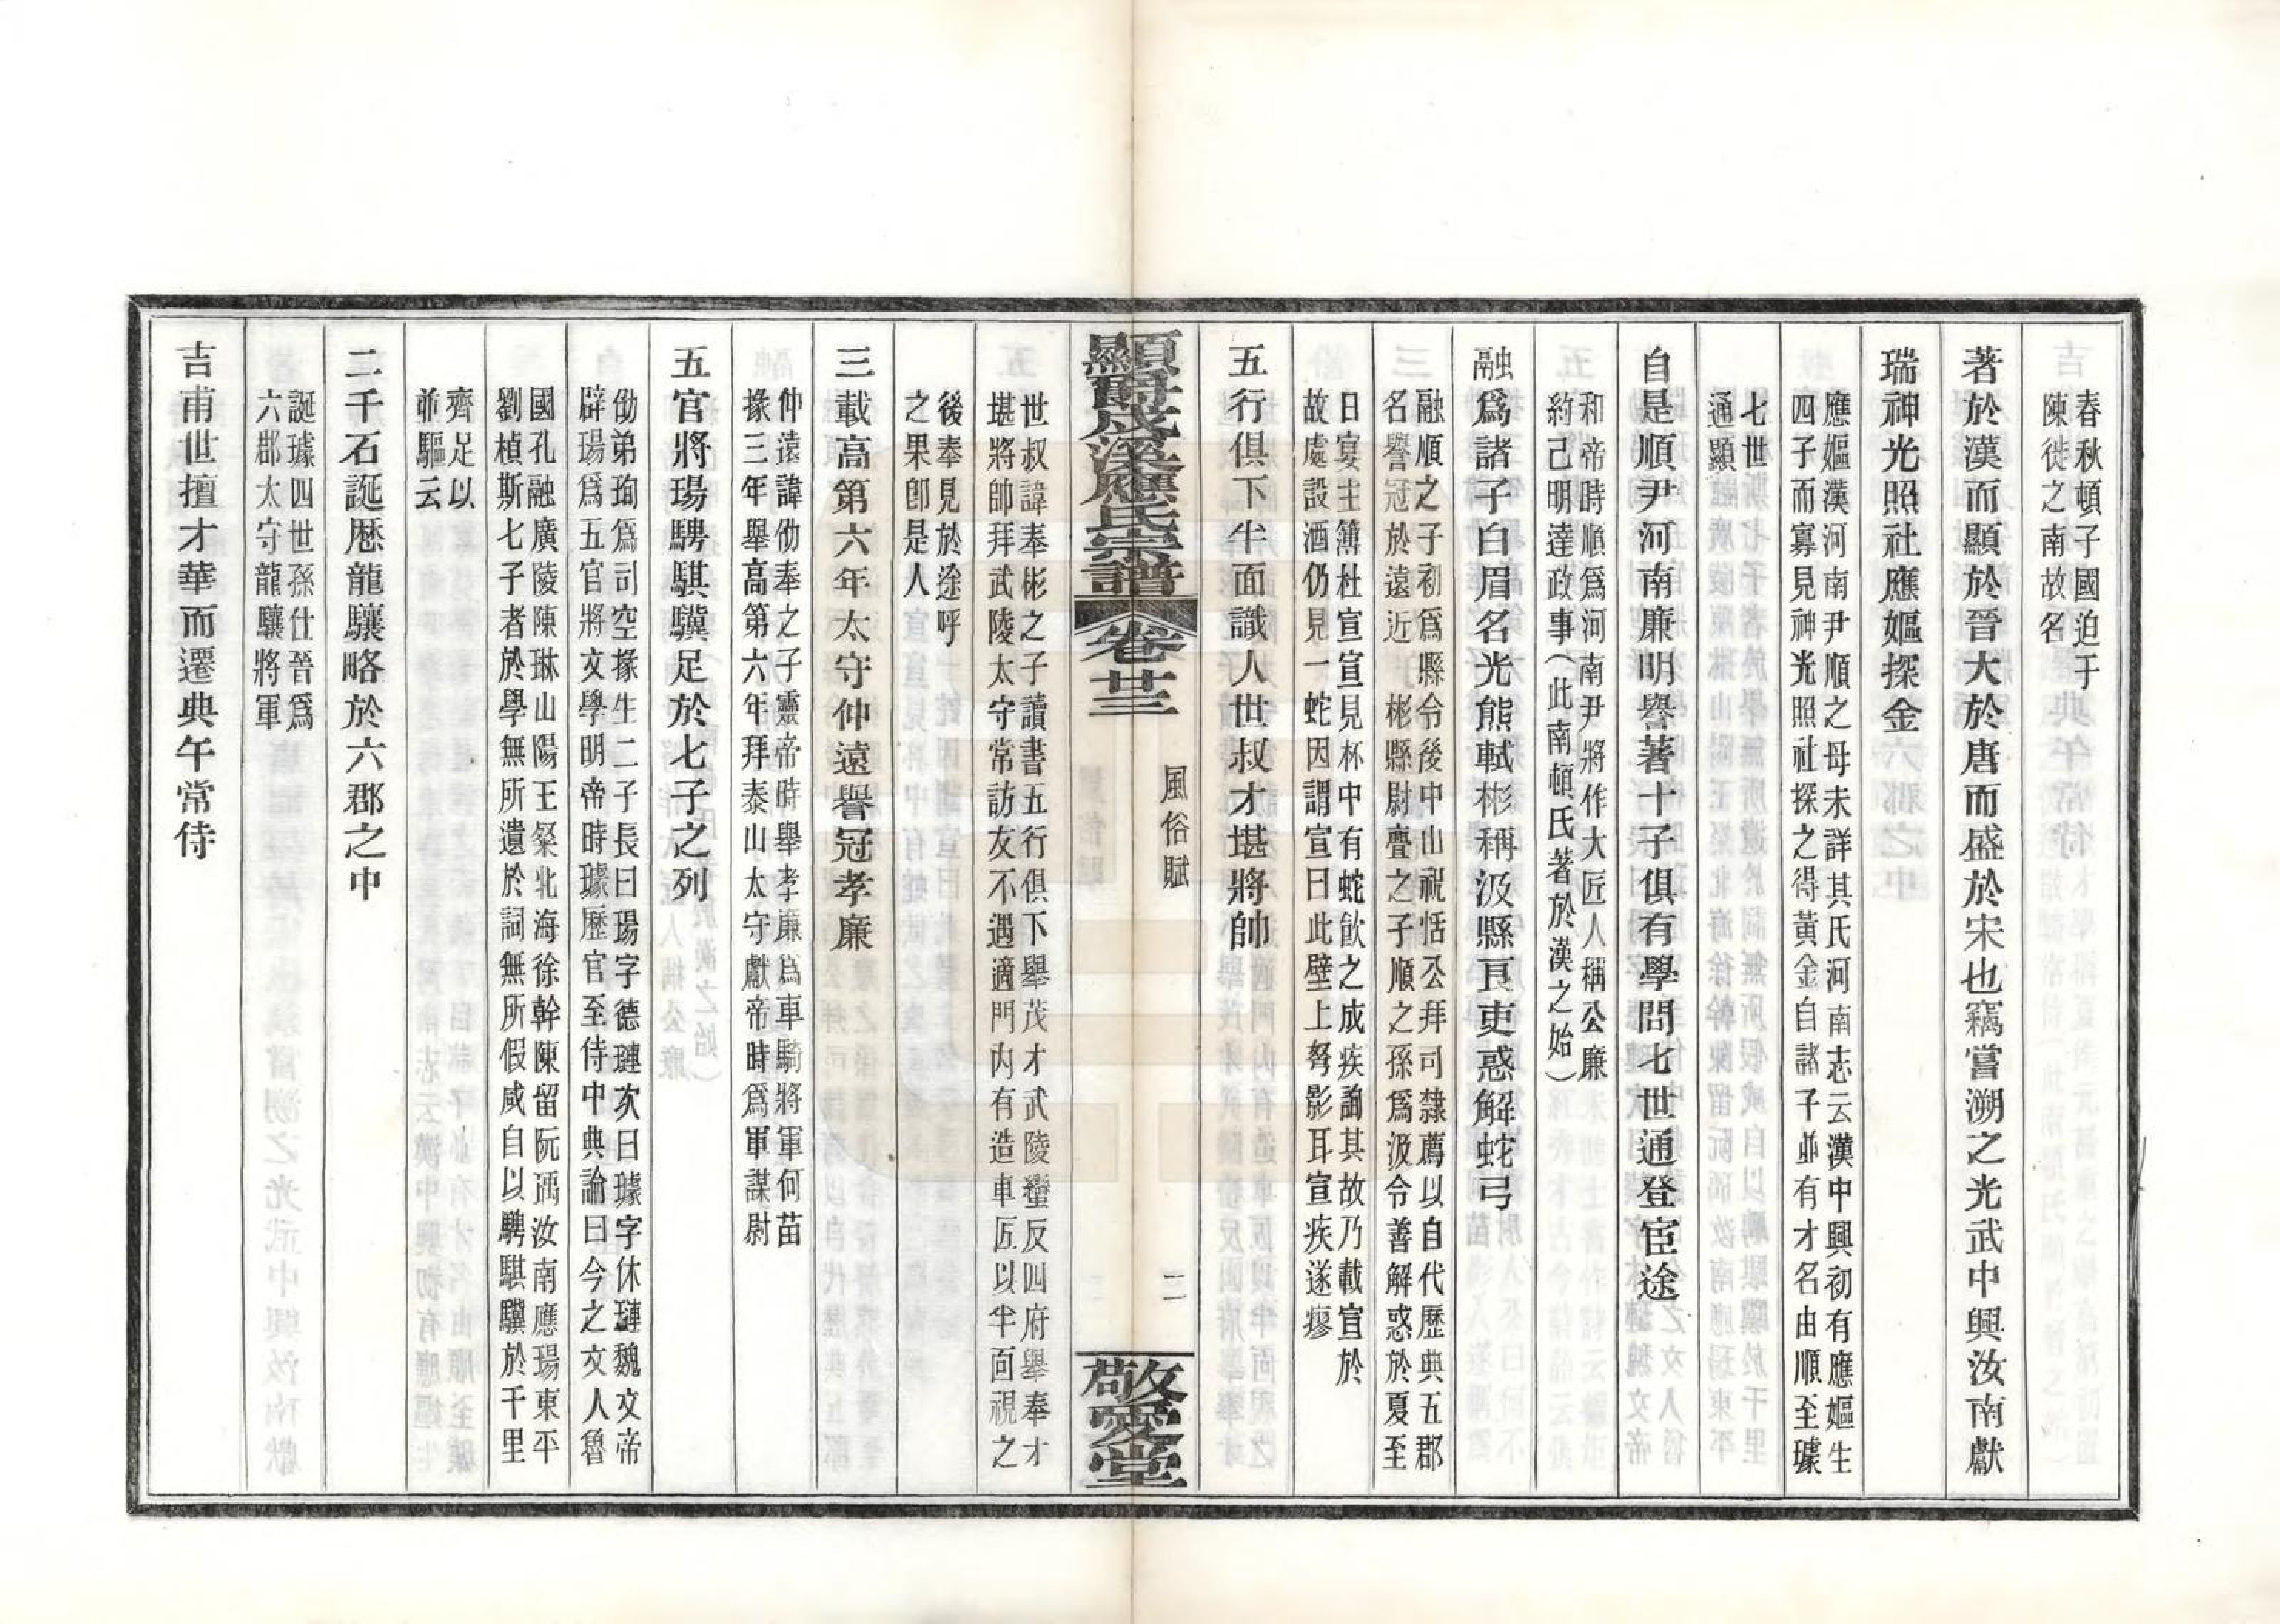 春秋頓子國迫于
陳徙之南故名
著於漢而顯於晉大於唐而盛於宋也竊嘗溯之光武中興汝南獻
瑞神光照社應嫗探金
應嫗漢河南尹順之母未詳其氏河南志云漢中興初有應嫗生
四子而寡見神光照社探之得黃金自諸子並有才名由順至璩
七世
通顯
自是順尹河南廉明譽著十子俱有學問七世通登宦途
和帝時順爲河南尹將作大匠人稱公廉
約己明達政事(此南頓氏著於漢之始)
融爲諸子白眉名光熊軾彬稱汲縣良吏惑解蛇弓
融順之子初爲縣令後中山祝恬公拜司隸薦以自代歷典五郡
名譽冠於遠近 彬縣尉疊之子順之孫爲汲令善解惑於夏至
日宴主簿杜宣宣見杯中有蛇飲之成疾詢其故乃載宣於
故處設酒仍見一蛇因謂宣曰此壁上弩影耳宣疾遂瘳
五行俱下半面識人世叔才堪將帥
顯爵成溪應氏宗譜 卷廿三
風俗賦
二
敬愛堂
世叔諱奉彬之子讀書五行俱下舉茂才武陵蠻反四府舉奉才
堪將帥拜武陵太守常訪友不遇適門內有造車匠以半面視之
後奉見於途呼
之果卽是人
三載高第六年太守仲遠譽冠孝廉
仲遠諱劭奉之子靈帝時舉孝廉爲車騎將軍何苗
掾三年舉高第六年拜泰山太守獻帝時爲軍謀尉
五官將瑒騁騏驥足於七子之列
劭弟珣爲司空掾生二子長曰瑒字德璉次曰璩字休璉魏文帝
辟瑒爲五官將文學明帝時璩歷官至侍中典論曰今之文人魯
國孔融廣陵陳琳山陽王粲北海徐幹陳留阮瑀汝南應瑒東平
劉楨斯七子者於學無所遺於詞無所假咸自以騁騏驥於千里
齊足以
並驅云
二千石誕歷龍驤略於六郡之中
誕璩四世孫仕晉爲
六郡太守龍驤將軍
吉甫世擅才華而遷典午常侍